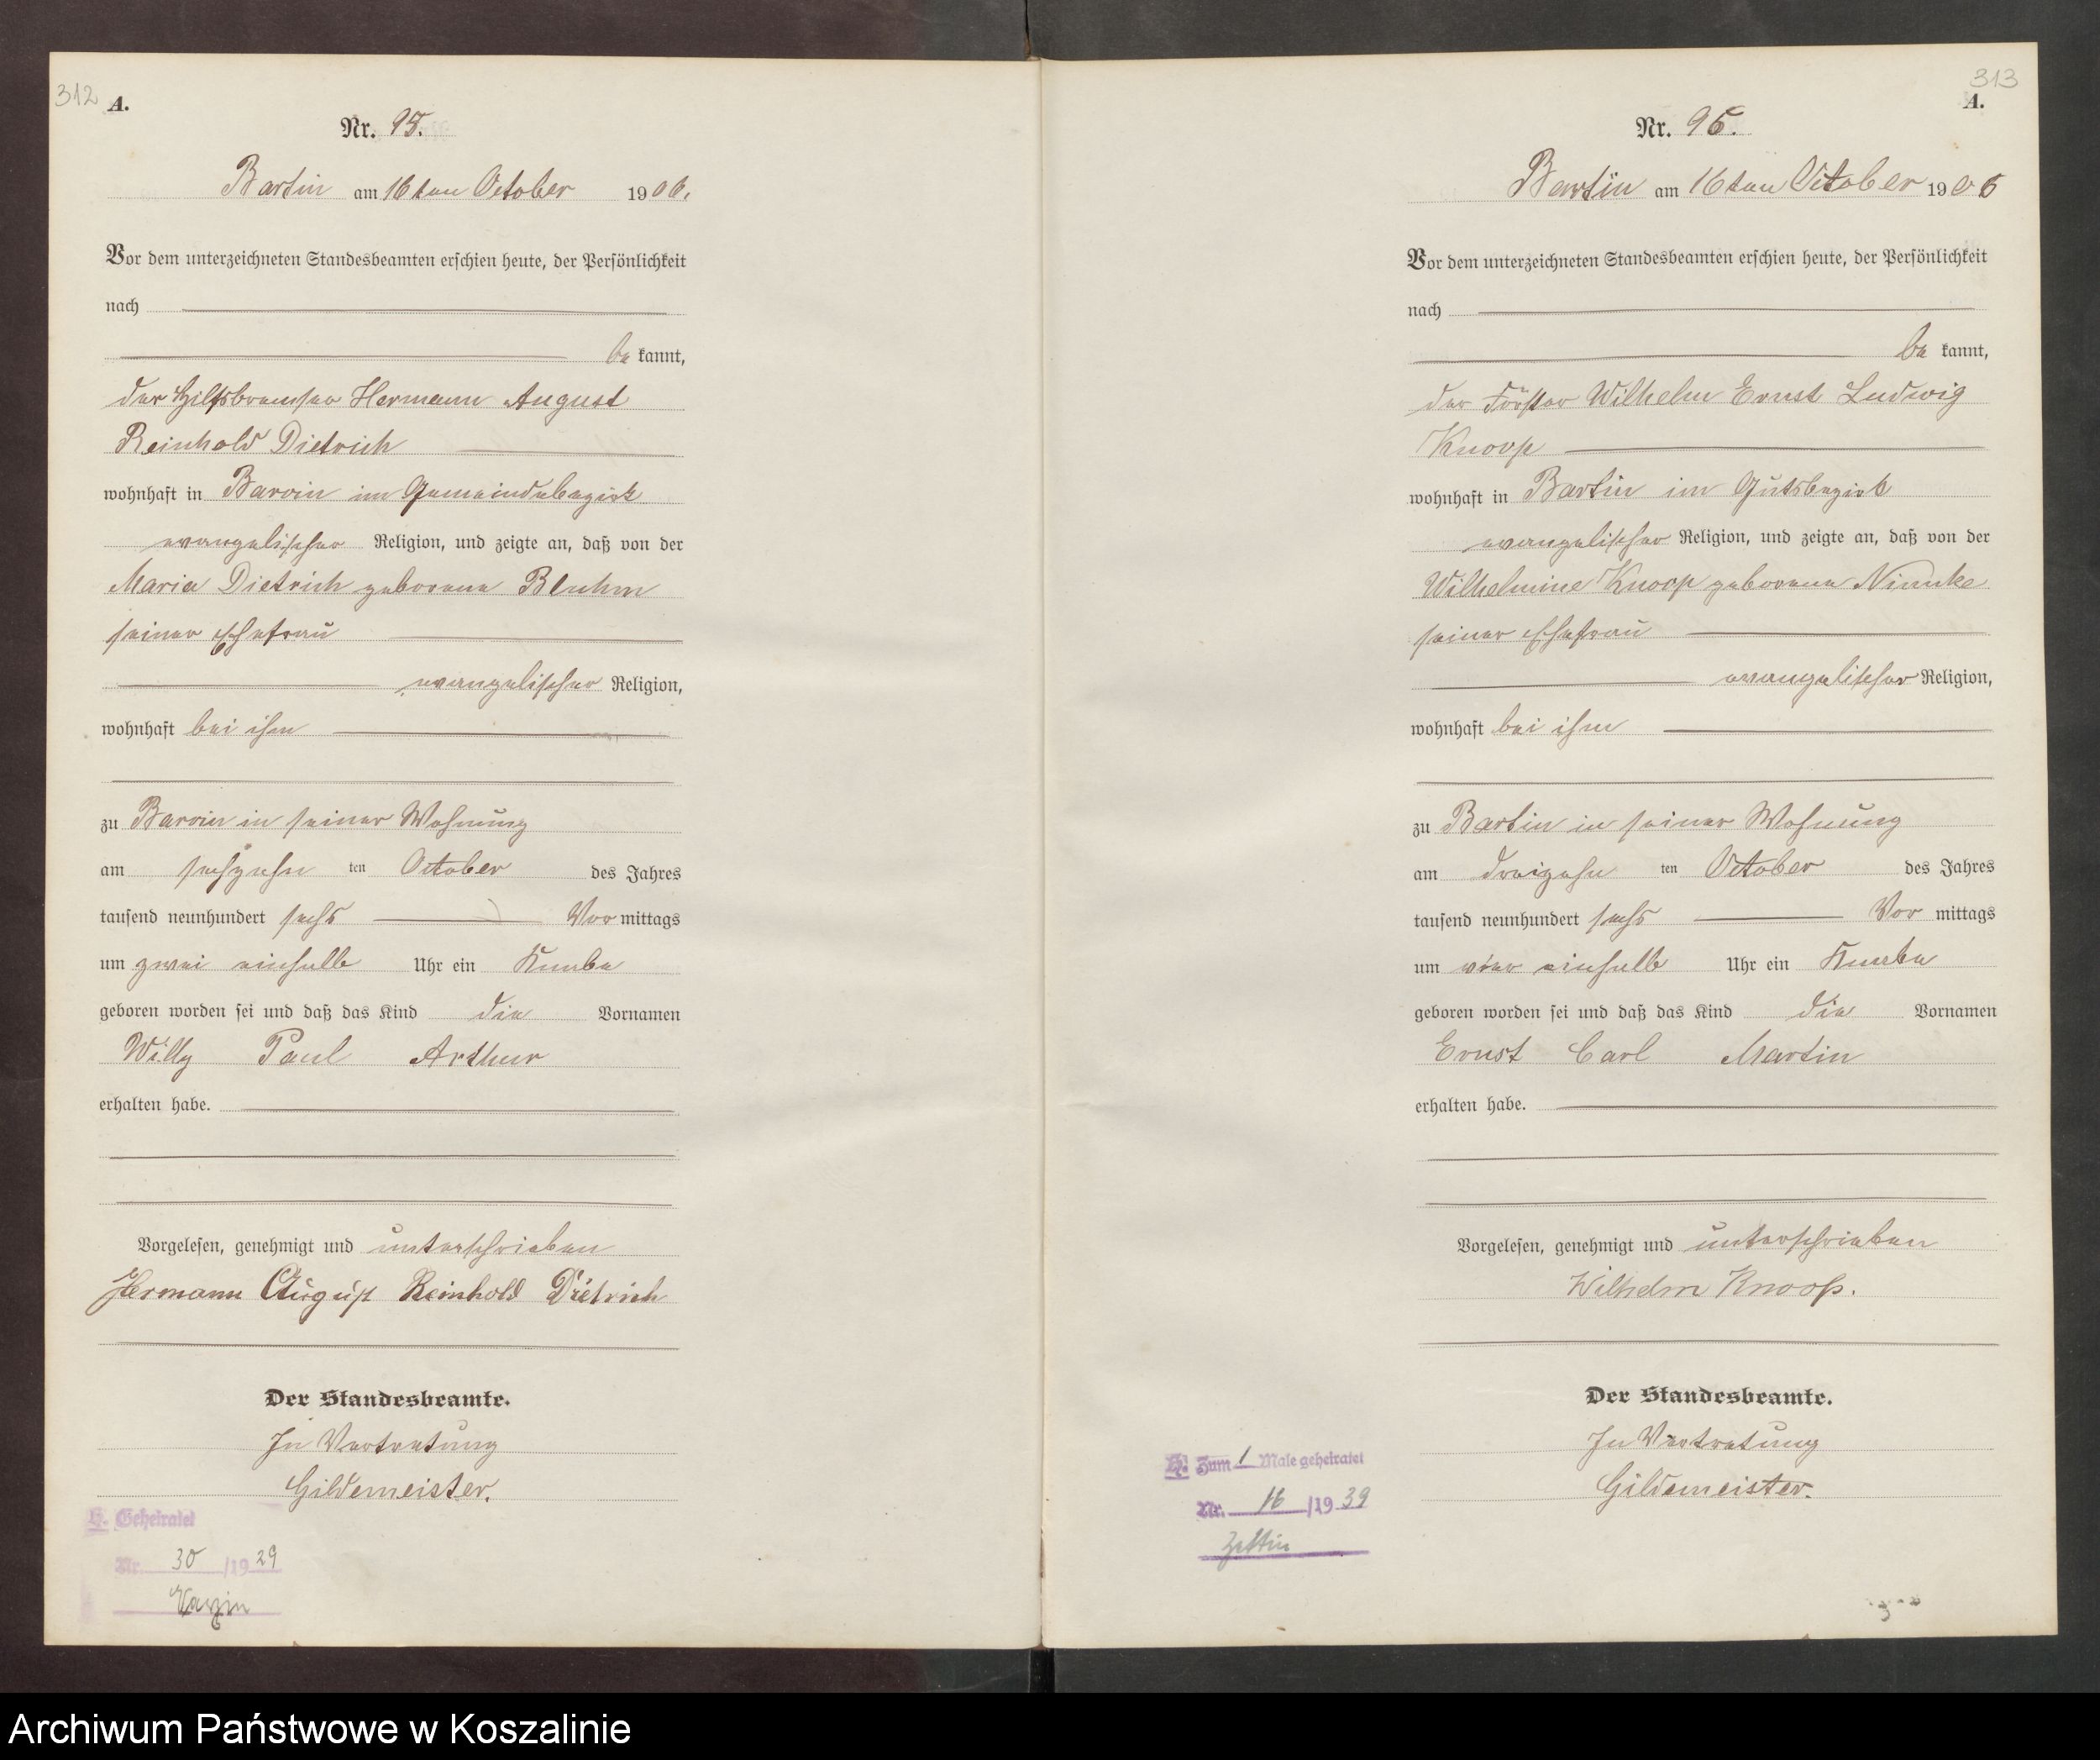 312
A.
Nr. 95.
Bartin am 16ten October 1906.
Vor dem unterzeichneten Standesbeamten erschien heute, der Persönlichkeit
nach
be kannt,
der Hilfsbremser Hermann August
Reinhold Dietrich
wohnhaft in Barvin im Gemeindebezirk
evangelischer Religion, und zeigte an, daß von der
Maria Dietrich geborene Bluhm
seiner Ehefrau
evangelischer Religion,
wohnhaft bei ihm
zu Barvin in seiner Wohnung
am sechzehn ten October des Jahres
tausend neunhundert sechs Vor mittags
um zwei einhalb Uhr ein Knabe
geboren worden sei und daß das Kind die Vornamen
Willy Paul Arthur
erhalten habe.
Vorgelesen, genehmigt und unterschrieben
Hermann August Reinhold Dietrich
Der Standesbeamte.
In Vertretung
Gildemeister.
H. Geheiratet
Nr. 30 /1929
Varzin
313
A.
Nr. 96.
Bartin am 16ten October 1906
Vor dem unterzeichneten Standesbeamten erschien heute, der Persönlichkeit
nach
be kannt,
der Förster Wilhelm Ernst Ludwig
Knoop
wohnhaft in Bartin im Gutsbezirk
evangelischer Religion, und zeigte an, daß von der
Wilhelmine Knoop geborene Nimke
seiner Ehefrau
evangelischer Religion,
wohnhaft bei ihm
zu Bartin in seiner Wohnung
am dreizehn ten October des Jahres
tausend neunhundert sechs Vor mittags
um vier einhalb Uhr ein Knabe
geboren worden sei und daß das Kind die Vornamen
Ernst Carl Martin
erhalten habe.
Vorgelesen, genehmigt und unterschrieben
Wilhelm Knoop.
Der Standesbeamte.
In Vertretung
Gildemeister.
H. Zum 1 Male geheiratet
Nr. 16 /1939
Zettin
Archiwum Państwowe w Koszalinie